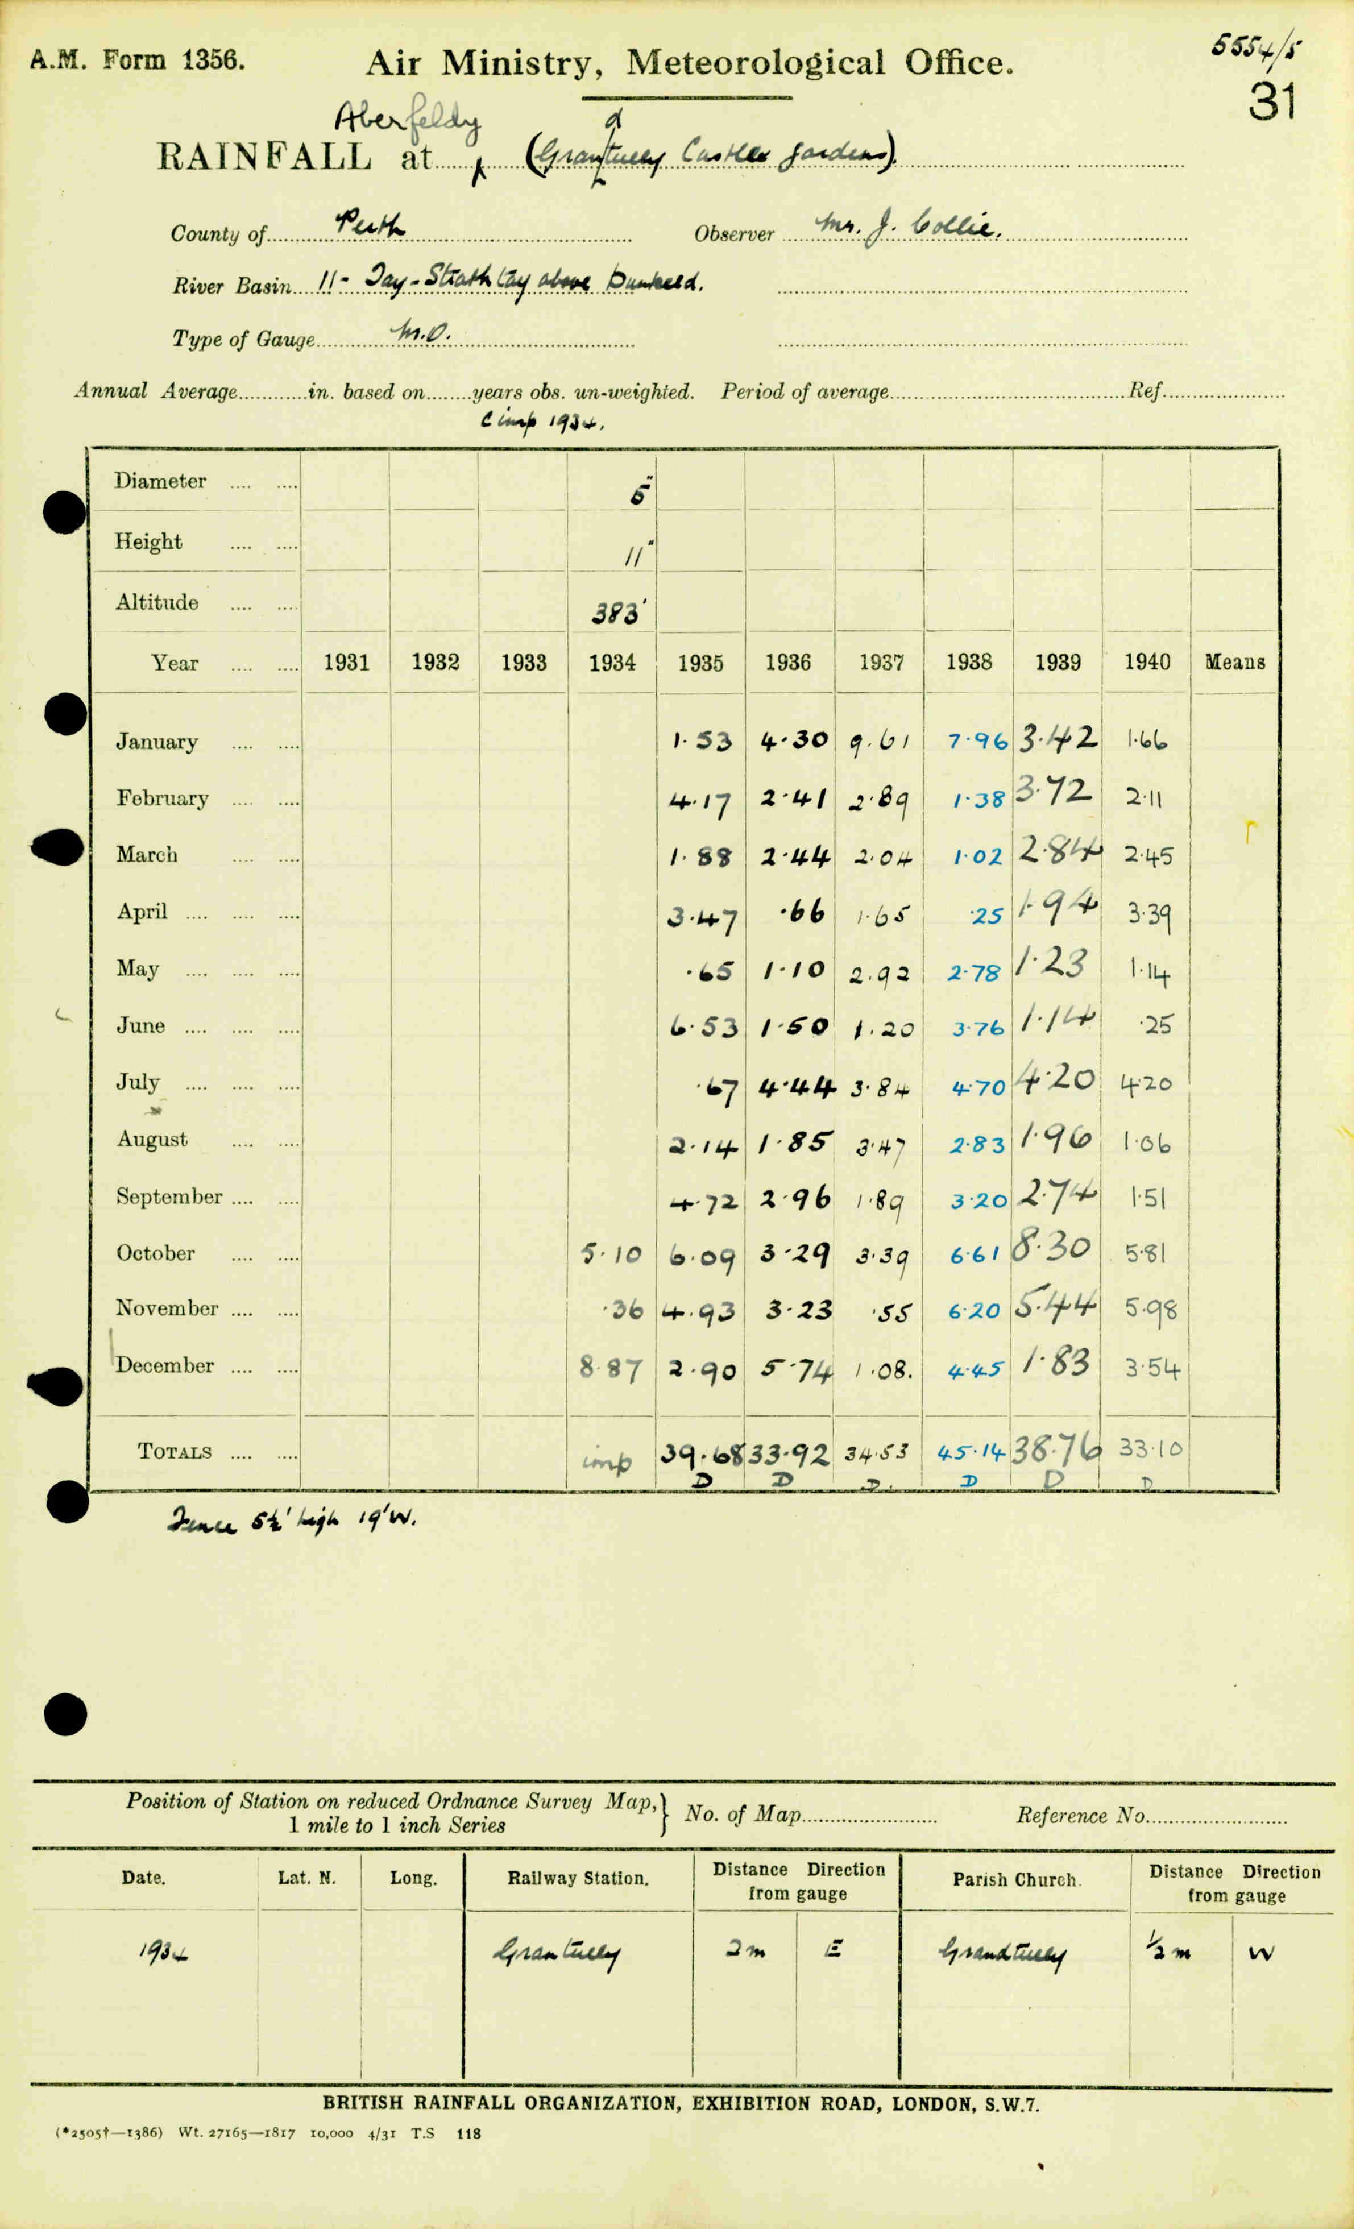 5554/5
A.M. Form 1356. Air Ministry, Meteorological Office.
31
Aberfeldy d
RAINFALL at (Grantully Castle gardens).
County of Perth Observer Mr. J. Collie.
River Basin 11- Tay-Strath tay above Dunkeld.
Type of Gauge M.O.
Annual Average in. based on years obs. un-weighted. Period of average Ref.
C imp 1934.
Diameter 5"
Height 11"
Altitude 383'
Year 1931 1932 1933 1934 1935 1936 1937 1938 1939 1940 Means
January 1.53 4.30 9.61 7.96 3.42 1.66
February 4.17 2.41 2.89 1.38 3.72 2.11
March 1.88 2.44 2.04 1.02 2.84 2.45
April 3.47 .66 1.65 .25 1.94 3.39
May .65 1.10 2.92 2.78 1.23 1.14
June 6.53 1.50 1.20 3.76 1.14 .25
July .67 4.44 3.84 4.70 4.20 4.20
August 2.14 1.85 3.47 2.83 1.96 1.06
September 4.72 2.96 1.89 3.20 2.74 1.51
October 5.10 6.09 3.29 3.39 6.61 8.30 5.81
November .36 4.93 3.23 .55 6.20 5.44 5.98
December 8.87 2.90 5.74 1.08. 4.45 1.83 3.54
TOTALS imp 39.68 33.92 34.53 45.14 38.76 33.10
D D D. D D D
Fence 5½' high 19'W.
Position of Station on reduced Ordnance Survey Map,} No. of Map Reference No.
1 mile to 1 inch Series
Date. Lat. N. Long. Railway Station. Distance Direction from gauge Parish Church. Distance Direction from gauge
1934 Grantully 2m E Grandtully ½ m W
BRITISH RAINFALL ORGANIZATION, EXHIBITION ROAD, LONDON, S.W.7.
(*2505†—1386) Wt. 27165—1817 10,000 4/31 T.S 118